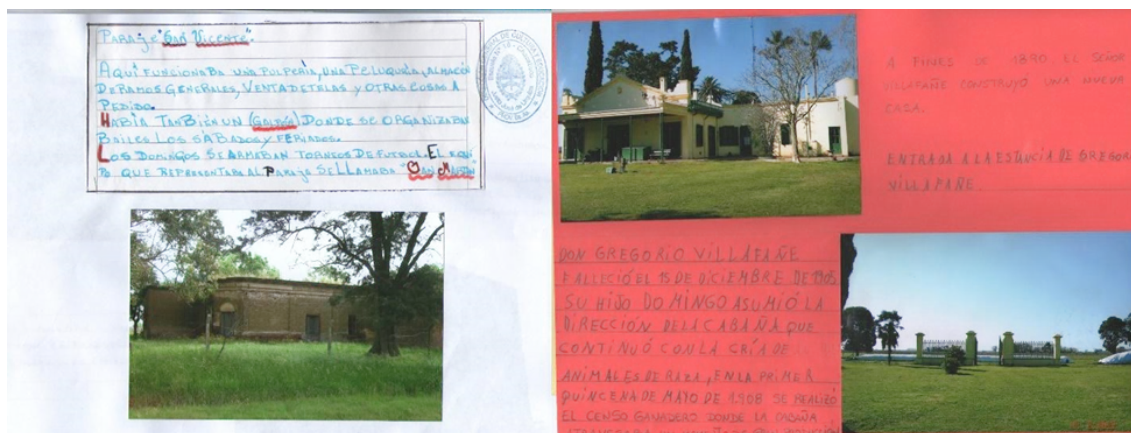 PARAJE "SAN VICENTE".
AQUÍ FUNCIONABA UNA PULPERÍA, UNA PELUQUERÍA, ALMACÉN
DE RAMOS GENERALES, VENTA DE TELAS Y OTRAS COSAS A
PEDIDO.
HABÍA TAMBIÉN UN (GALPÓN) DONDE SE ORGANIZABAN
BAILES LOS SÁBADOS Y FERIADOS.
LOS DOMINGOS SE ARMABAN TORNEOS DE FUTBOL. EL EQUI
PO QUE REPRESENTABA AL PARAJE SE LLAMABA SAN MARTÍN
A FINES DE 1890 EL SEÑOR
VILLAFAÑE CONSTRUYÓ UNA NUEVA
CASA.
ENTRADA A LA ESTANCIA DE GREGORI
VILLAFAÑE
DON GREGORIO VILLAFAÑE
FALLECIÓ EL 15 DE DICIEMBRE DE 1905
SU HIJO DOMINGO ASUMIÓ LA
DIRECCIÓN DE LA CABAÑA QUE
CONTINUÓ CON LA CRÍA DE
ANIMALES DE RAZA, EN LA PRIMER
QUINCENA DE MAYO DE 1908 SE REALIZÓ
EL CENSO GANADERO DONDE LA CABAÑA